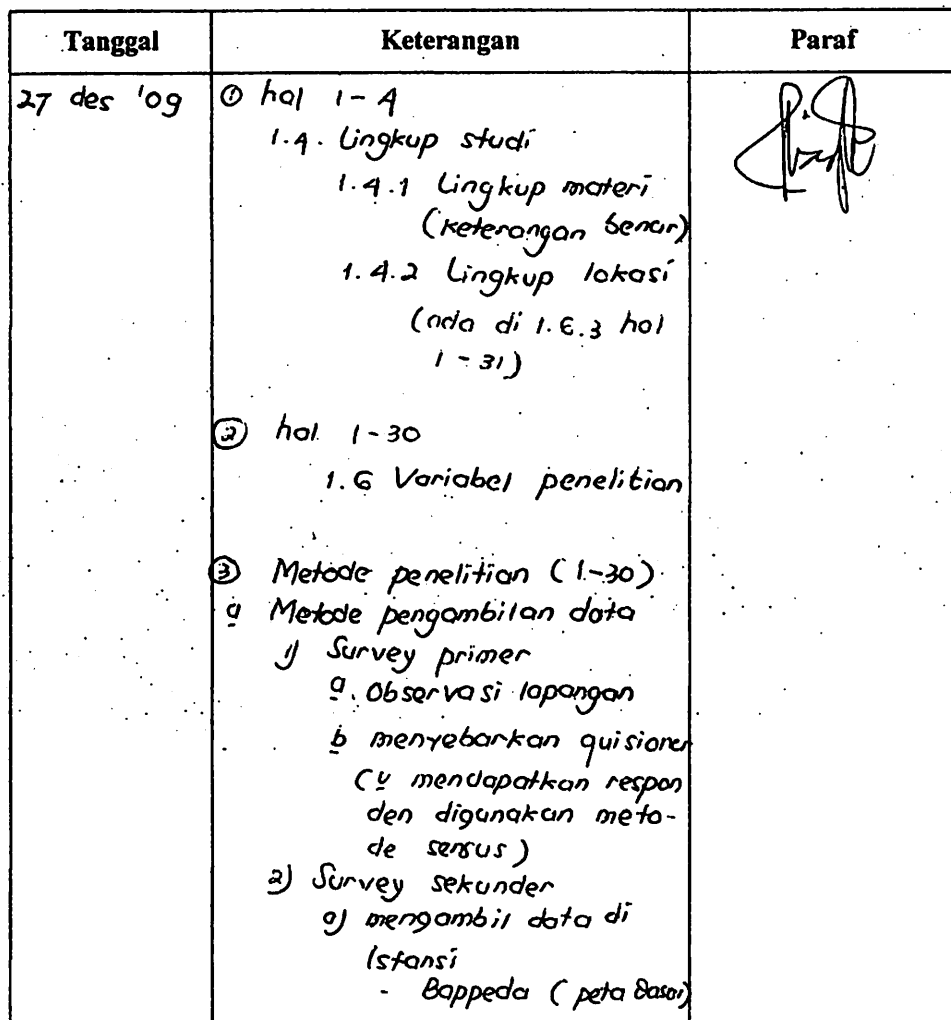 Tanggal Keterangan Paraf
27 des '09 ① hal 1-4
1.4. Lingkup studi
1.4.1 Lingkup materi
(keterangan benar)
1.4.2 Lingkup lokasi
(ada di 1.6.3 hal
1-31)
② hal 1-30
1.6 Variabel penelitian
③ Metode penelitian (1-30)
a Metode pengambilan data
1) Survey primer
a. Observasi lapangan
b menyebarkan quisioner
(u mendapatkan respon
den digunakan meto-
de sensus)
2) Survey sekunder
a) mengambil data di
Istansi
- Bappeda (peta Dasar)